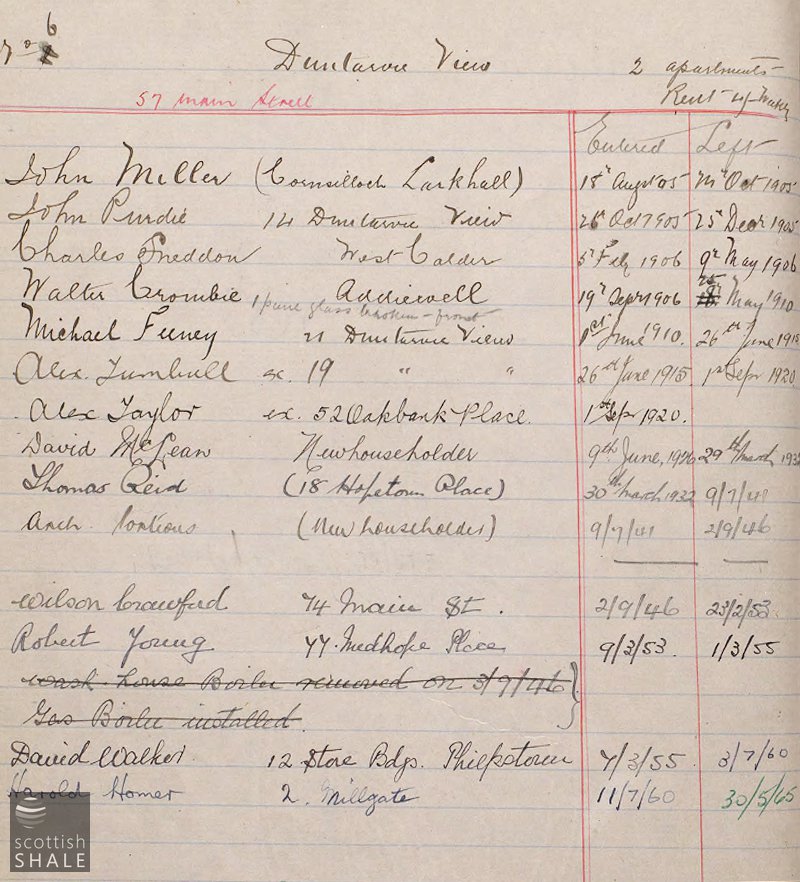 No 6 Duntarvie View 2 apartments
57 Main Street Rent
Entered Left
John Miller (Cornsilloch Larkhall) 18th Augst 05 Oct 1905
John Purdie 14 Duntarvie View 26th Oct 1905 25th Decr 1905
Charles Sneddon West Calder 5th Feby 1906 9th May 1906
Walter Crombie Addiewell 19th Sepr 1906 25 May 1910
1 pane glass broken - front
Michael Feeney 21 Duntarvie View 1st June 1910. 26th June 1915
Alex. Turnbull ex. 19 " " 26th June 1915. 1st Sepr 1920
Alex Taylor ex. 52 Oakbank Place. 1st Sepr 1920.
David McLean Newhouseholder 9th June, 1926 29th March 1932
Thomas Reid (18 Hopetoun Place) 30th March 1932 9/7/41
Arch. Porteous (New householder) 9/7/41 2/9/46
Wilson Crawford 74 Main St. 2/9/46 23/2/53
Robert Young 77 Midhope Place 9/3/53. 1/3/55
Wash-house Boiler removed on 3/9/46
Gas Boiler installed.
David Walker. 12 Store Bdgs. Philpstoun 7/3/55 3/7/60
Harold Homer 2. Millgate 11/7/60 30/5/65
scottish
SHALE